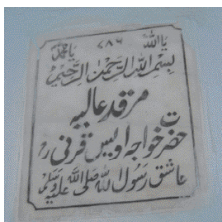 یااللہ ۷۸۶ یامحمد
بسم اللہ الرحمن الرحیم
مرقد عالیہ
حضرت خواجہ اویس قرنی رض
عاشق رسول اللہ صلی اللہ علیہ وسلم